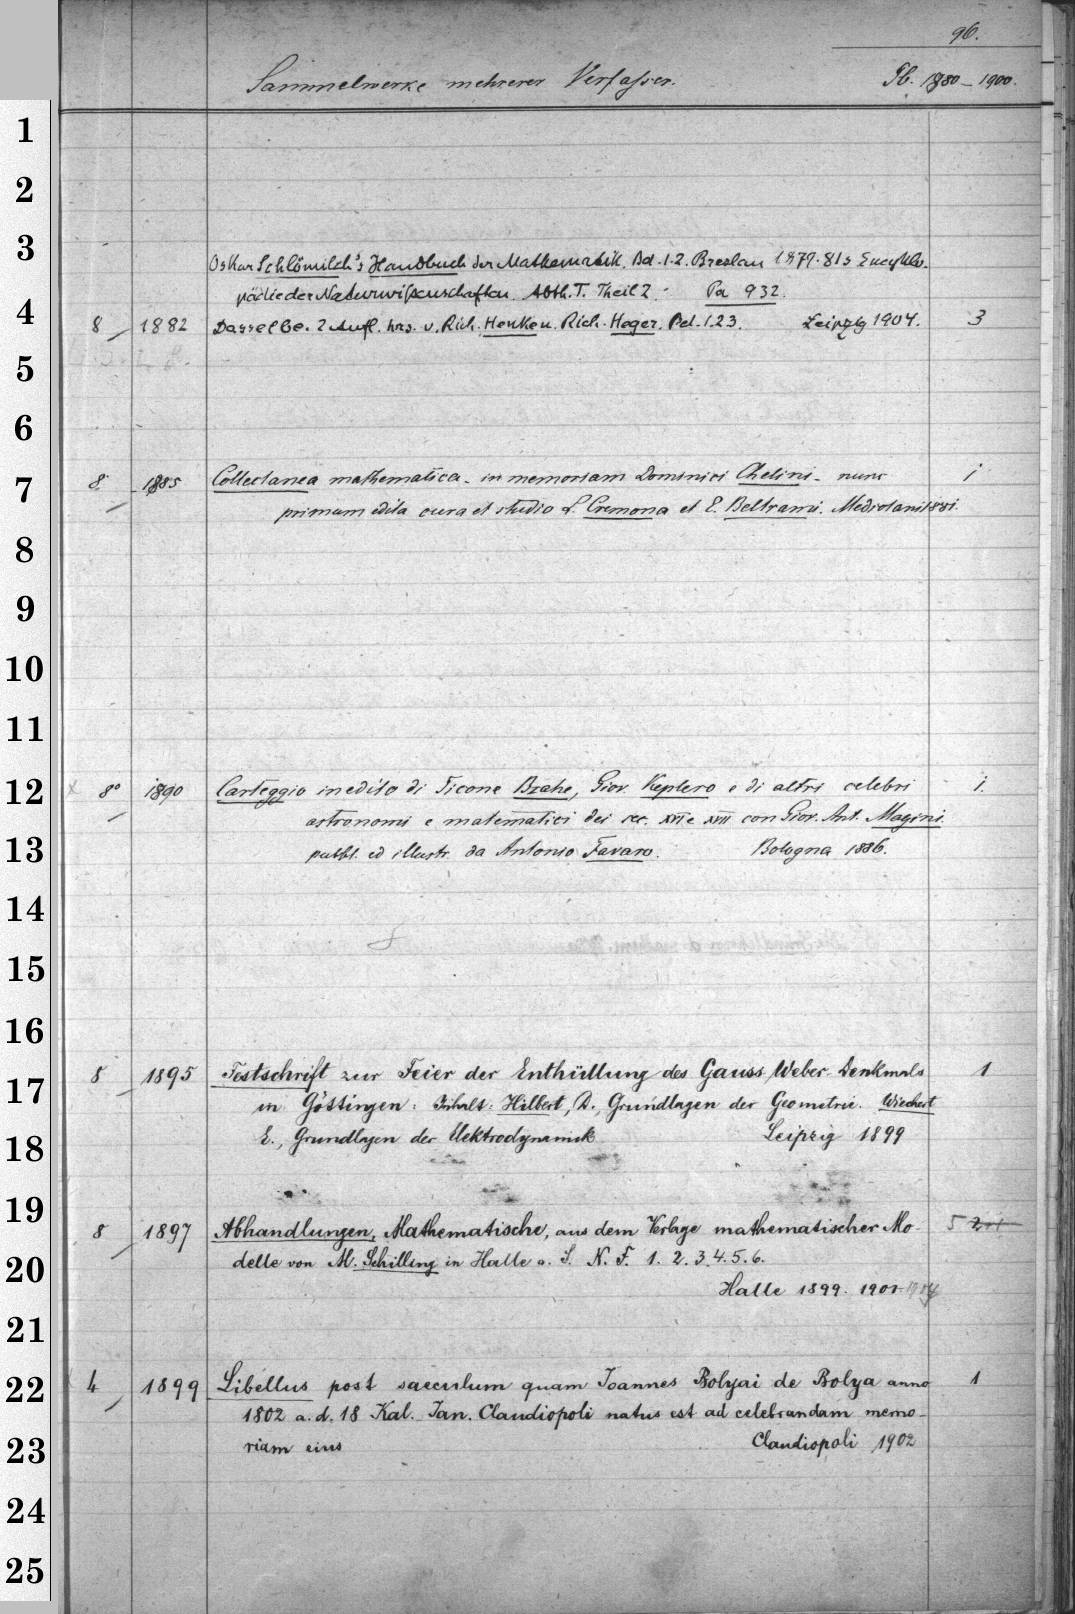 96.
Sammelwerke mehrerer Verfasser. Pb. 1880–1900.
1
2
3
Oskar Schlömilch's Handbuch der Mathematik. Bd. 1.2. Breslau 1879.81 s Encyklo-
pädie der Naturwissenschaften. Abth. I. Theil 2. Pa 932.
4
8 1882 Dasselbe. 2 Aufl. hrs. v. Rich. Henke u. Rich. Heger. Bd. 1.2.3. Leipzig 1904. 3
5
6
7
8 1885 Collectanea mathematica - in memoriam Dominici Chelini - nunc 1
primum edita cura et studio L. Cremona et E. Beltrami. Mediolani 1881.
8
9
10
11
12
8° 1890 Carteggio inedito di Ticone Brahe, Giov. Keplero e di altri celebri 1.
astronomi e matematici dei sec. XVI e XVII con Giov. Ant. Magini.
13
pubbl. ed illustr. da Antonio Favaro. Bologna 1886.
14
15
16
17
8 1895 Festschrift zur Feier der Enthüllung des Gauss-Weber-Denkmals 1
in Göttingen: Inhalt: Hilbert, D., Grundlagen der Geometrie. Wiechert
18
E., Grundlagen der Elektrodynamik Leipzig 1899
19
8 1897 Abhandlungen, Mathematische, aus dem Verlage mathematischer Mo- 5
20
delle von M. Schilling in Halle a. S. N. F. 1. 2. 3. 4. 5. 6.
Halle 1899. 1901-1904
21
22
4 1899 Libellus post saeculum quam Ioannes Bolyai de Bolya anno 1
1802 a. d. 18 Kal. Ian. Claudiopoli natus est ad celebrandam memo-
23
riam eius Claudiopoli 1902
24
25